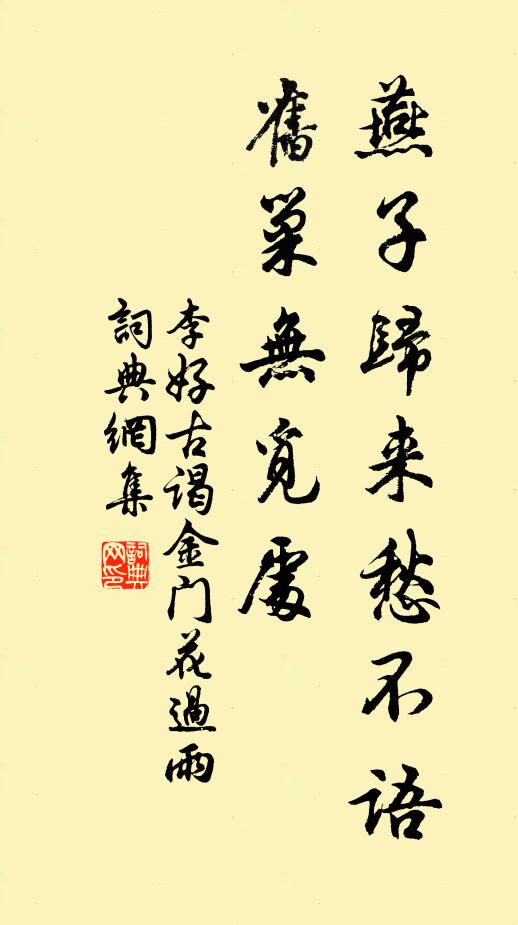 燕子歸来愁不語
舊巢無覓處
李好古谒金门花過雨
詞典網集
詞典网印